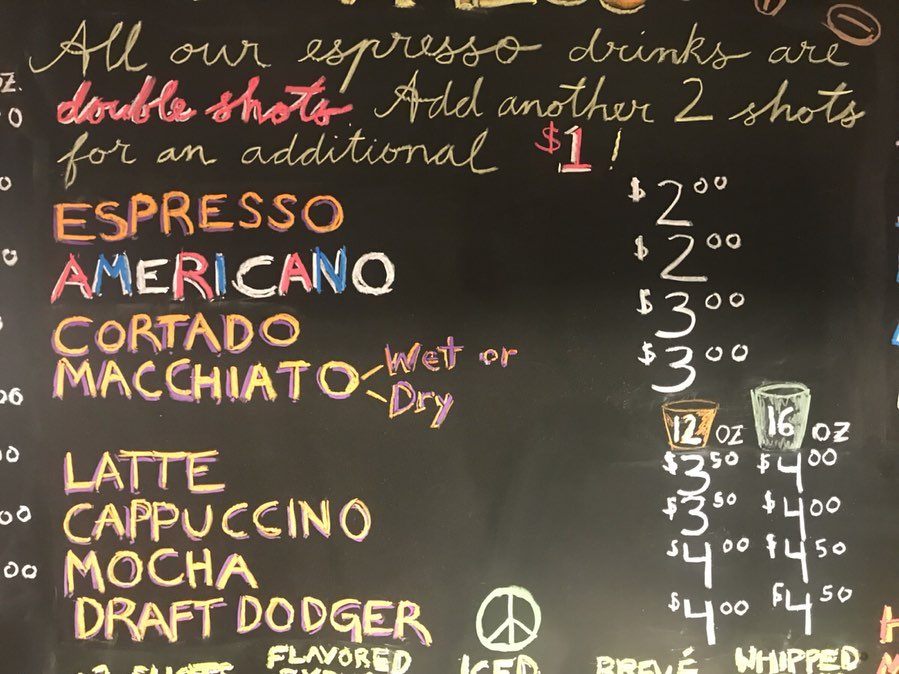 All our espresso drinks are
double shots. Add another 2 shots
for an additional $1!
ESPRESSO $2.00
AMERICANO $2.00
CORTADO $3.00
MACCHIATO Wet or Dry $3.00
12 OZ 16 OZ
LATTE $3.50 $4.00
CAPPUCCINO $3.50 $4.00
MOCHA $4.00 $4.50
DRAFT DODGER $4.00 $4.50
FLAVORED ICED BREVÉ WHIPPED